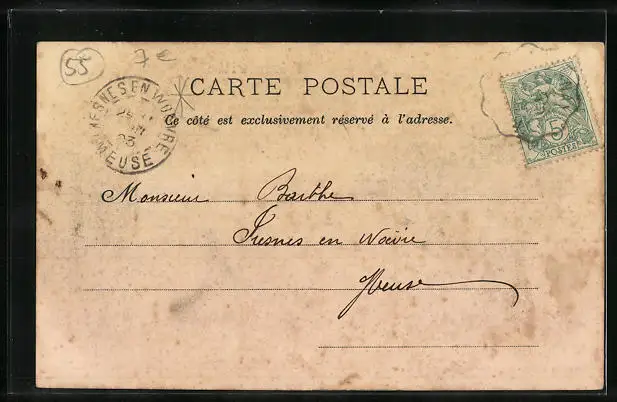 55 7 €
CARTE POSTALE
Ce côté est exclusivement réservé à l'adresse.
FRESNES EN WOEVRE
03
MEUSE
5
POSTES
Monsieur Barthe
Fresnes en Woëvre
Meuse